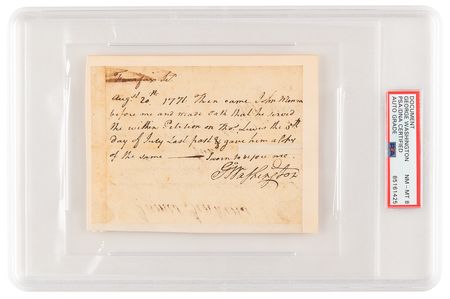 Fairfax Sct
Augst 20th 1771 Then came John Monro
before me and made Oath that he served
the within Petition on Thos. Lewis the 5th
day of July Last past & gave him a Copy
of the same — Sworn to before me
Go Washington
DOCUMENT
GEORGE WASHINGTON
PSA/DNA CERTIFIED
AUTO GRADE
NM - MT 8
85161425